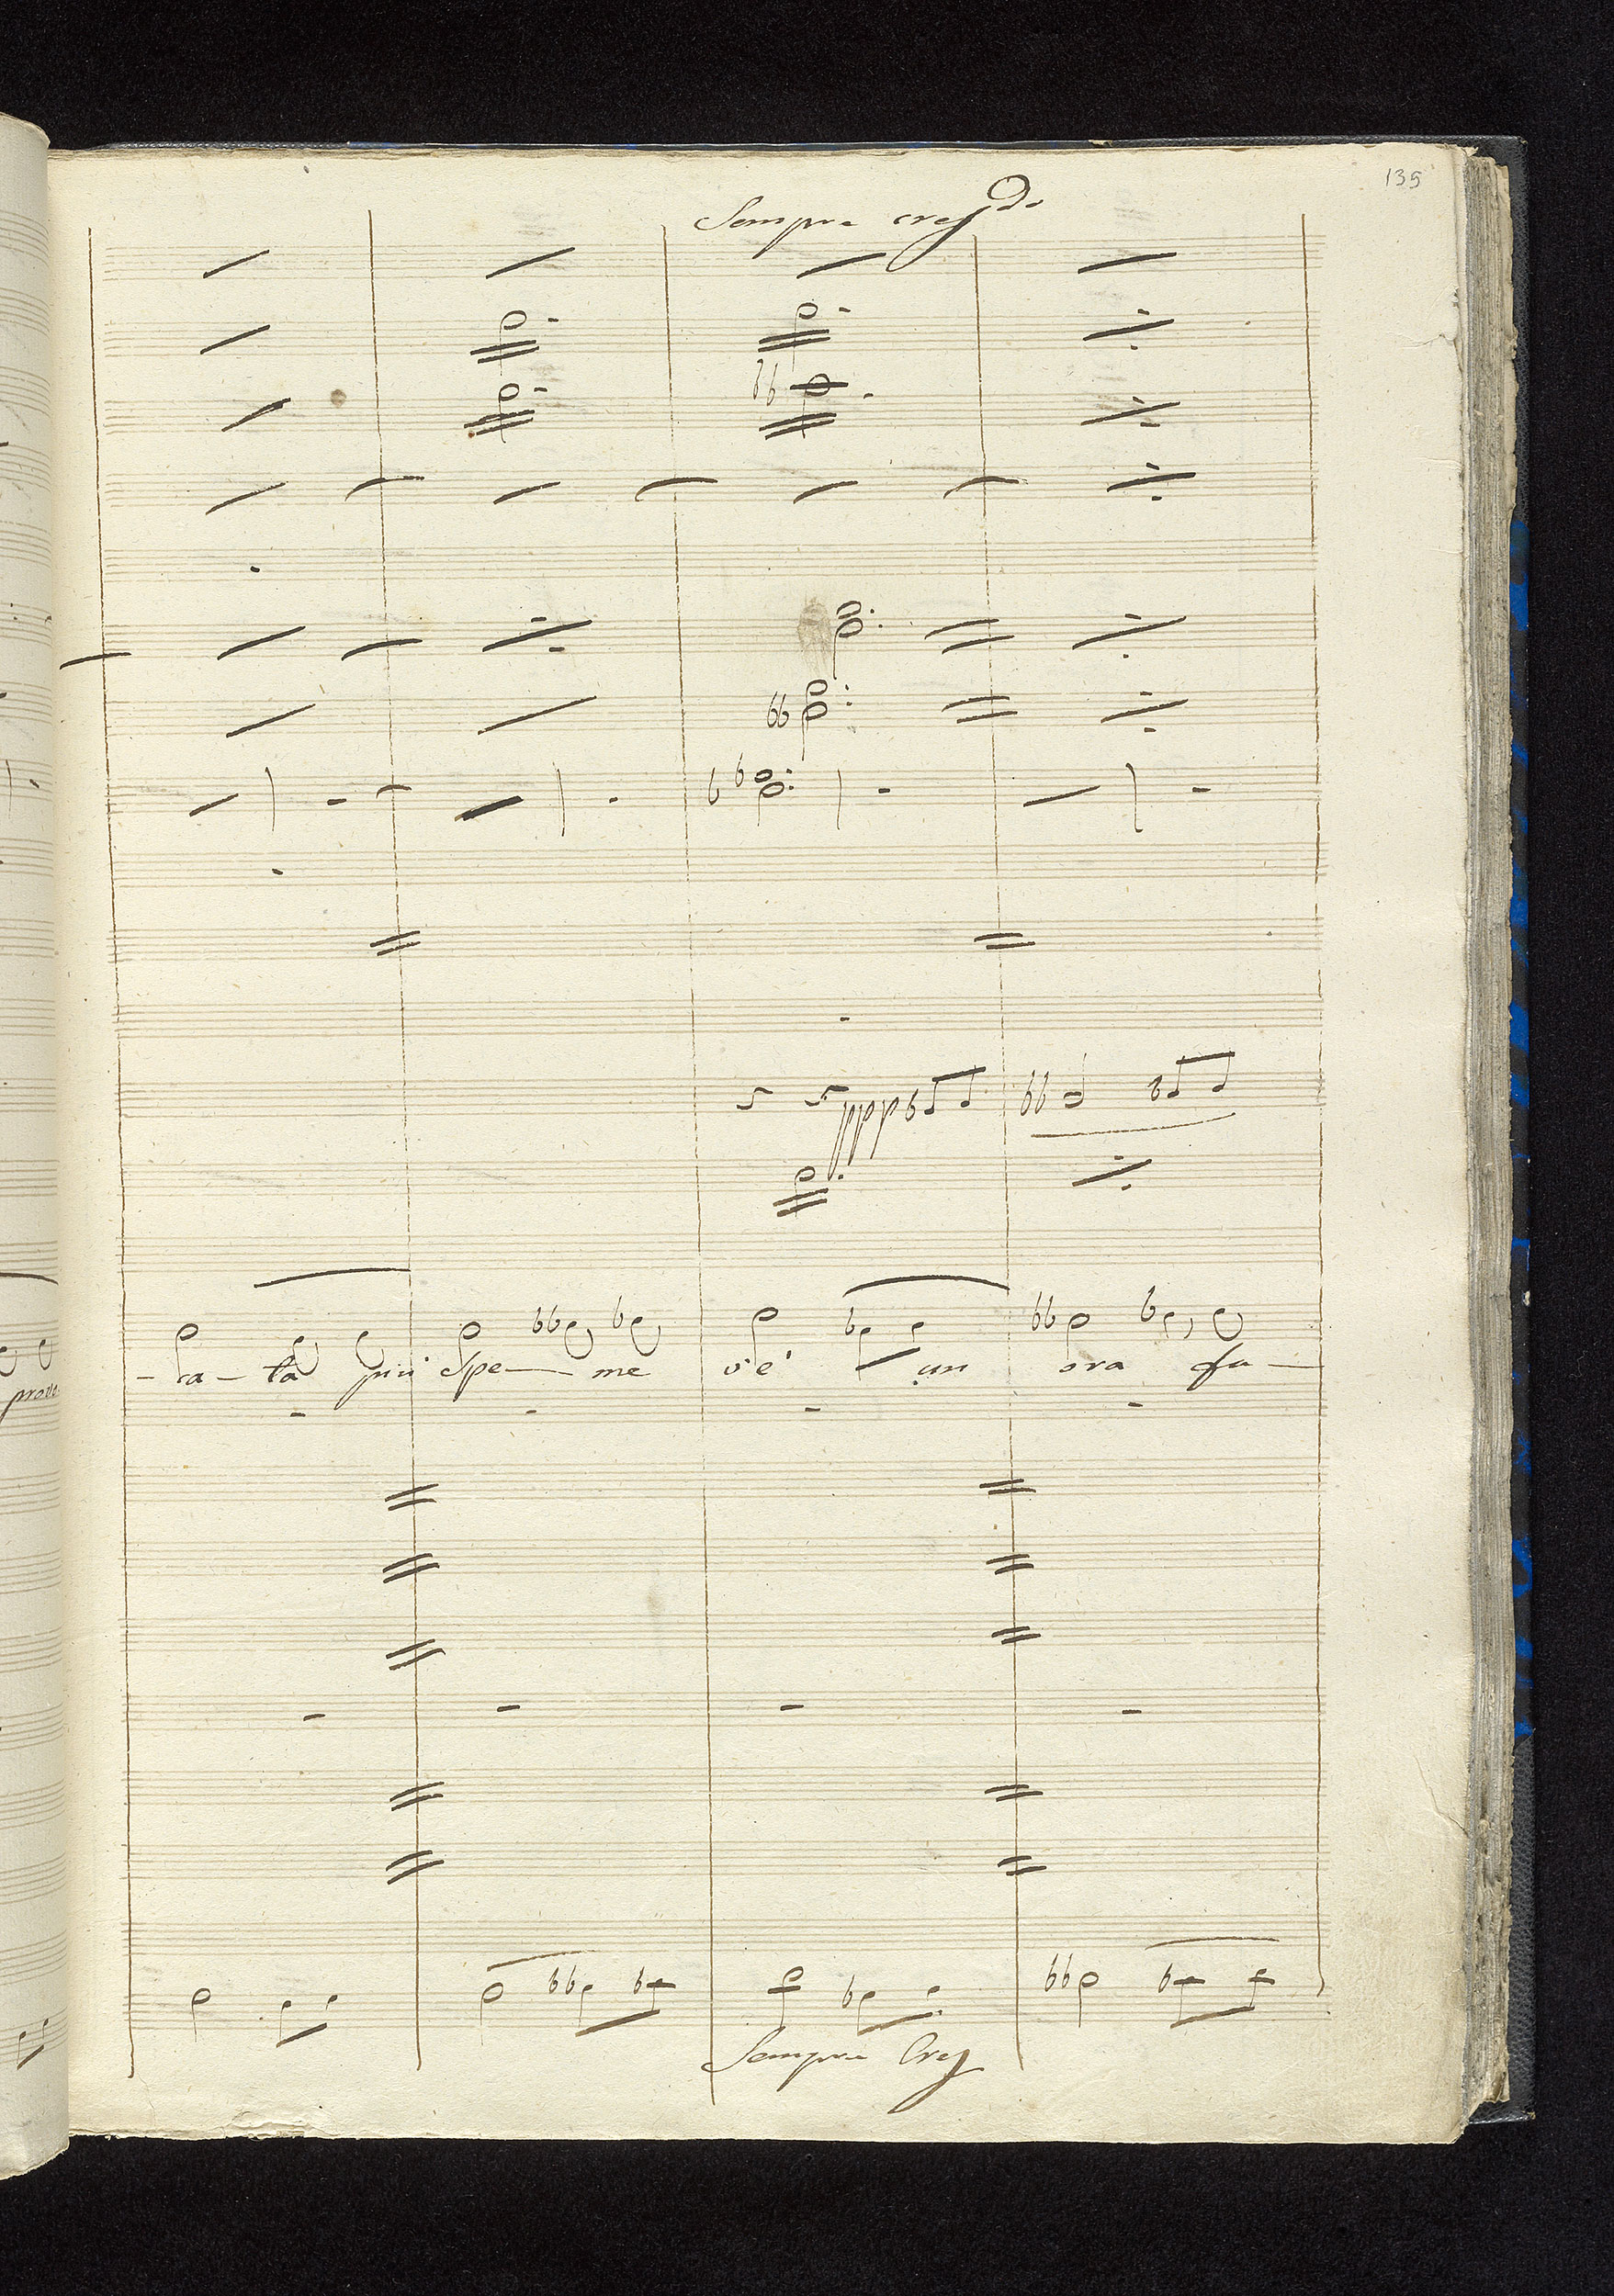 135
Sempre cresdo
ppp
- ca - ta più Spe - me v'è un ora fa -
prove
Sempre Cres